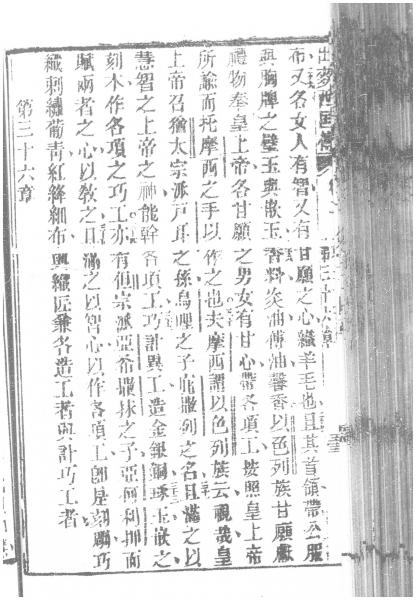 布又各女人有智又有甘願之心織羊毛也且其首領帶公服
與胸牌之璧玉與嵌玉香料炎油傅油馨香以色列族甘願獻
禮物奉皇上帝各甘願之男女有甘心帶各項工按照皇上帝
所諭而托摩西之手以作之也夫摩西謂以色列族云視哉皇
上帝召猶太宗派戶耳之孫烏哩之子庇撒列之名且滿之以
慧智之上帝之神能幹各項工巧計異工造金銀銅琢玉嵌之
刻木作各項之巧工亦有但宗派亞希撒抹之子亞何利押而
賦兩者之心以教之且滿之以智心以作各項工師是刻鵰巧
織刺繡葡青紅絳細布與織匠兼各造工者與計巧工者
第三十六章